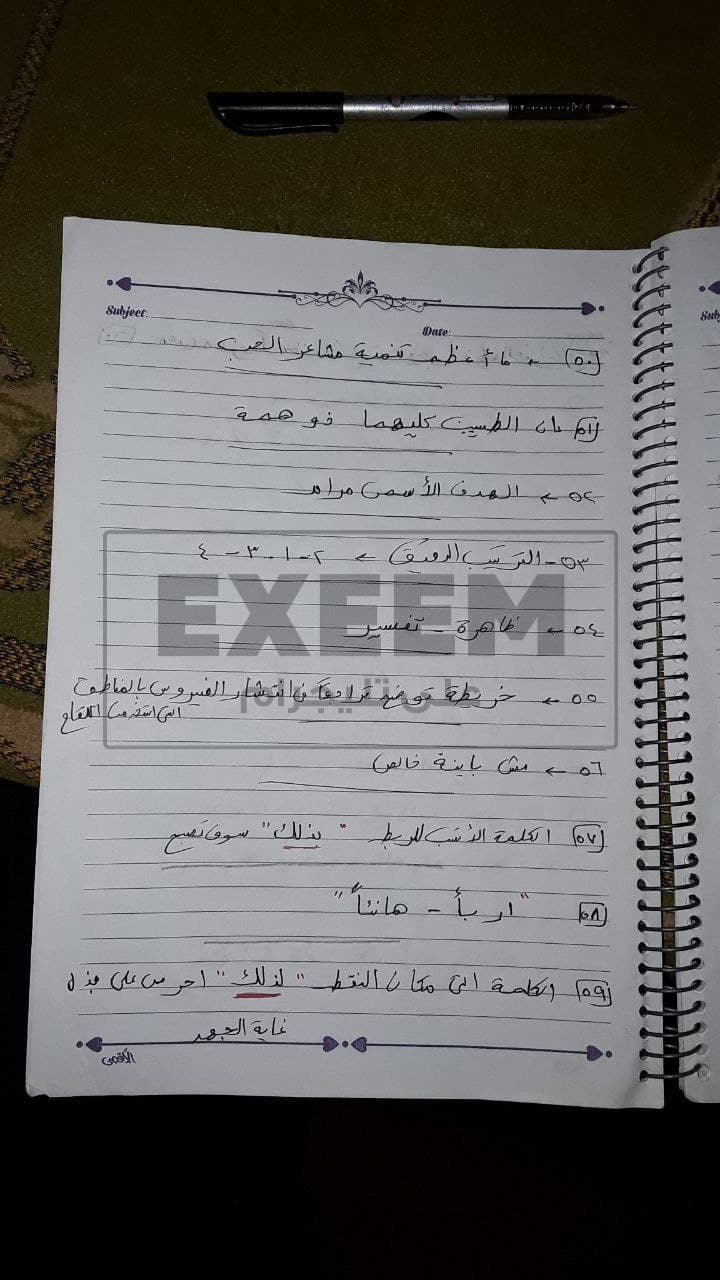 Subject:
Date:
٥٠ ← ما أعظم تنمية مشاعر الحب
٥١ بان الطيبين كليهما ذو همة
٥٢ ← الهدف الأسمى مرامـ
٥٣- الترتيب الدقيق ← ٢-١-٣-٤
EXEEM
٥٤ ← ظاهرة - تفسير
على تليجرام
٥٥ ← خريطة توضح تراجعاً في انتشار الفيروس بالمناطق
التي استخدمت اللقاح
٥٦ ← مش باينة خالص
٥٧ الكلمة الأنسب للربط "بذلك" سوف تصبح
٥٨ "اربأ - هانئاً"
٥٩ الكلمة التي مكان النقط "لذلك" احرص على بذل
غاية الجهد